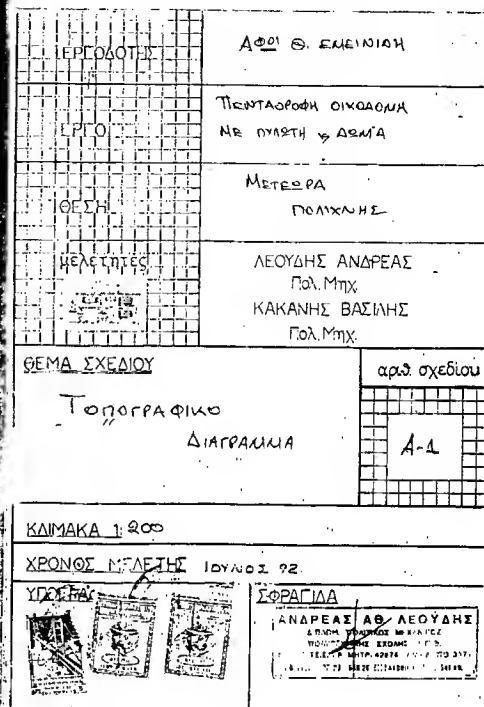 ΕΡΓΟΔΟΤΗΣ
ΑΦΟΙ Θ. ΕΜΕΙΝΙΔΗ
ΕΡΓΟ
ΠΕΝΤΑΟΡΟΦΗ ΟΙΚΟΔΟΜΗ
ΜΕ ΠΥΛΩΤΗ & ΔΩΜΑ
ΘΕΣΗ
ΜΕΤΕΩΡΑ
ΠΟΛΙΧΝΗΣ
μελετητες
ΛΕΟΥΔΗΣ ΑΝΔΡΕΑΣ
Πολ. Μηχ.
ΚΑΚΑΝΗΣ ΒΑΣΙΛΗΣ
Πολ. Μηχ.
ΘΕΜΑ ΣΧΕΔΙΟΥ
αριθ. σχεδίου
ΤΟΠΟΓΡΑΦΙΚΟ
ΔΙΑΓΡΑΜΜΑ
Α-1
ΚΛΙΜΑΚΑ 1:200
ΧΡΟΝΟΣ ΜΕΛΕΤΗΣ ΙΟΥΝΙΟΣ 92
ΣΦΡΑΓΙΔΑ
ΑΝΔΡΕΑΣ ΑΘ. ΛΕΟΥΔΗΣ